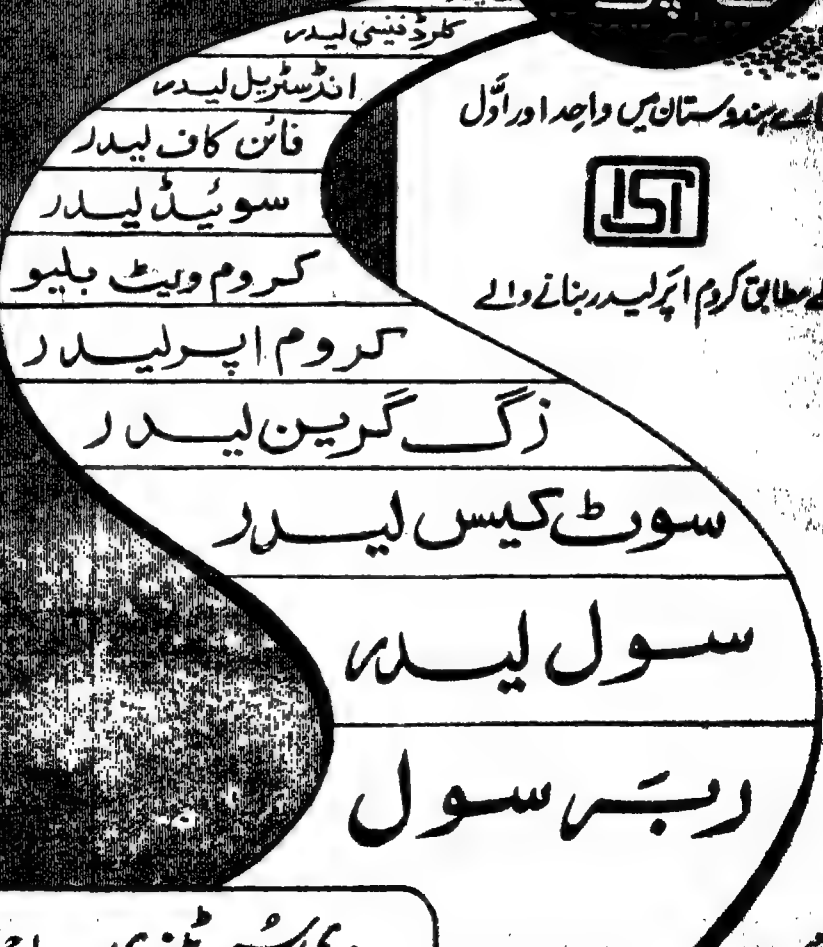 کلرڈ فینسی لیدر
انڈسٹریل لیدر
فائن کاف لیدر
سوئیڈ لیدر
کروم ویٹ بلیو
کروم اپر لیدر
زگ گرین لیدر
سوٹ کیس لیدر
سول لیدر
ربَر سول
ہندوستان میں واحد اور اوّل
ISI
مطابق کروم اپَر لیدر بنانے والے